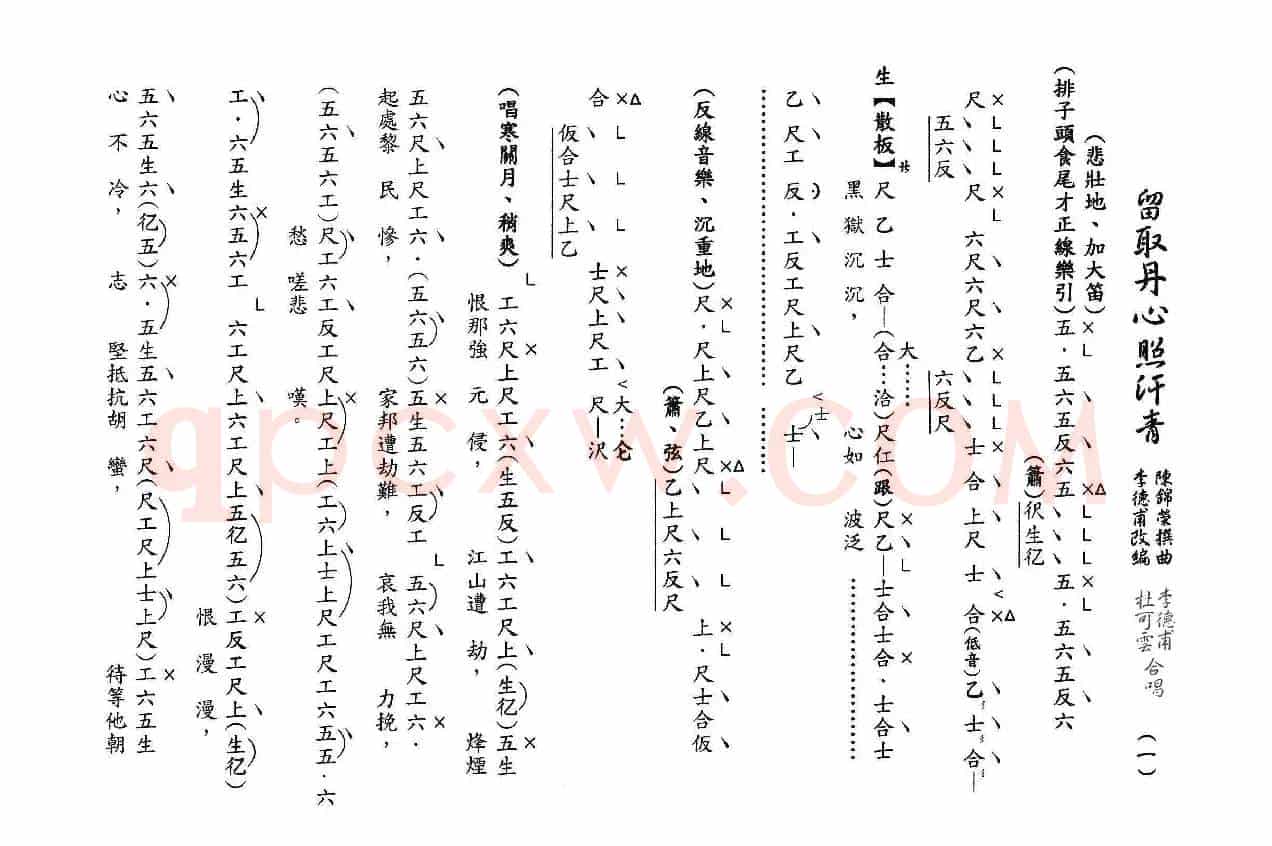 留取丹心照汗青
陳錦榮撰曲
李德甫改編
李德甫
杜可雲 合唱
(一)
(悲壯地、加大笛)
(排子頭食尾才正線樂引)五·五六五反六五 五·五六五反六
(簫)伬生亿
尺 尺 六尺六尺六乙 士合上尺士合(低音)乙士合—
五六反
六反尺
生【散板】尺乙士合—(合⋯洽)尺仁(跟)尺乙—士合士合·士合士
大⋯⋯
黑獄沉沉, 心如 波泛
乙 尺工 反·工反工尺上尺乙 <士 士—
(反線音樂、沉重地)尺·尺上尺乙上尺 上·尺士合仮
(簫、弦)乙上尺六反尺
合 士尺上尺工 <大⋯仑 尺—沢
仮合士尺上乙
(唱寒關月、稍爽) 工六尺上尺工六(生五反)工六工尺上(生亿)五生
恨那強 元 侵, 江山遭 劫, 烽煙
五六尺上尺工六·(五六五六)五生五六工反工 五六尺上尺工六·
起處黎 民 慘, 家邦遭劫難, 哀我無 力挽,
(五六五六工)尺工六工反工尺上尺工上(工六上士上尺工尺工六五五·六
愁 嗟悲 嘆。
工·六五生六五六工 六工尺上六工尺上五亿五六)工反工尺上(生亿)
恨 漫 漫,
五六五生六(亿五)六·五生五六工六尺(尺工尺上士上尺)工六五生
心 不 冷, 志 堅抵抗胡 蠻, 待等他朝
qpcxw.com